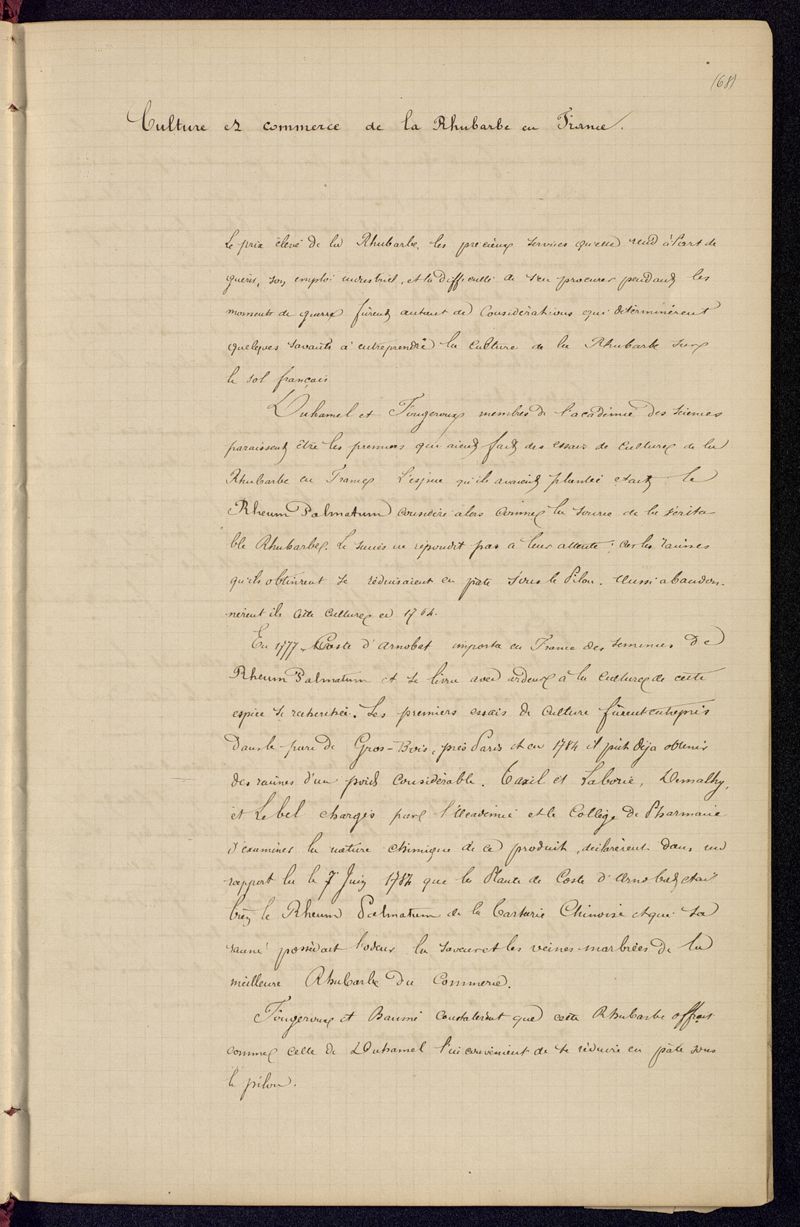 (68)
Culture et commerce de la Rhubarbe en France.
Le prix élevé de la Rhubarbe, les précieux services qu'elle rend à l'art de
guérir, son emploi industriel, et la difficulté de s'en procurer pendant les
moments de guerre furent autant de considérations qui déterminèrent
quelques savants à entreprendre la culture de la Rhubarbe sur
le sol français
Duhamel et Fougeroux membres de l'académie des sciences
paraissent être les premiers qui aient fait des essais de culture de la
Rhubarbe en France. L'espèce qu'ils avaient plantée était le
Rheum Palmatum considéré alors comme la source de la vérita-
ble Rhubarbe. Le succès ne répondit pas à leur attente; car les racines
qu'ils obtinrent se réduisaient en pâte sous le Pilon. Aussi abandon-
nèrent ils cette culture en 1764.
En 1777 Coste d'Arnobat importa en France des semences de
Rheum Palmatum et se livra avec ardeur à la culture de cette
espèce si recherchée. Les premiers essais de culture furent entrepris
dans le parc de Gros-Bois, près Paris et en 1784 il put déja obtenir
des racines d'un poids considérable. Taxil et Laborie, Demalhy,
et Lebel chargés par l'Académie et le Collège de Pharmacie
d'examiner la nature chimique de ce produit, déclarèrent dans un
rapport lu le 7 Juin 1784 que la Plante de Coste d'Arnobat était
bien le Rheum Palmatum de la Tartarie Chinoise et que sa
racine possédait l'odeur la saveur et les veines marbrées de la
meilleure Rhubarbe du Commerce.
Fougeroux et Baumé constatèrent que cette Rhubarbe offrait
comme celle de Duhamel l'inconvénient de se réduire en pâte sous
le pilon.